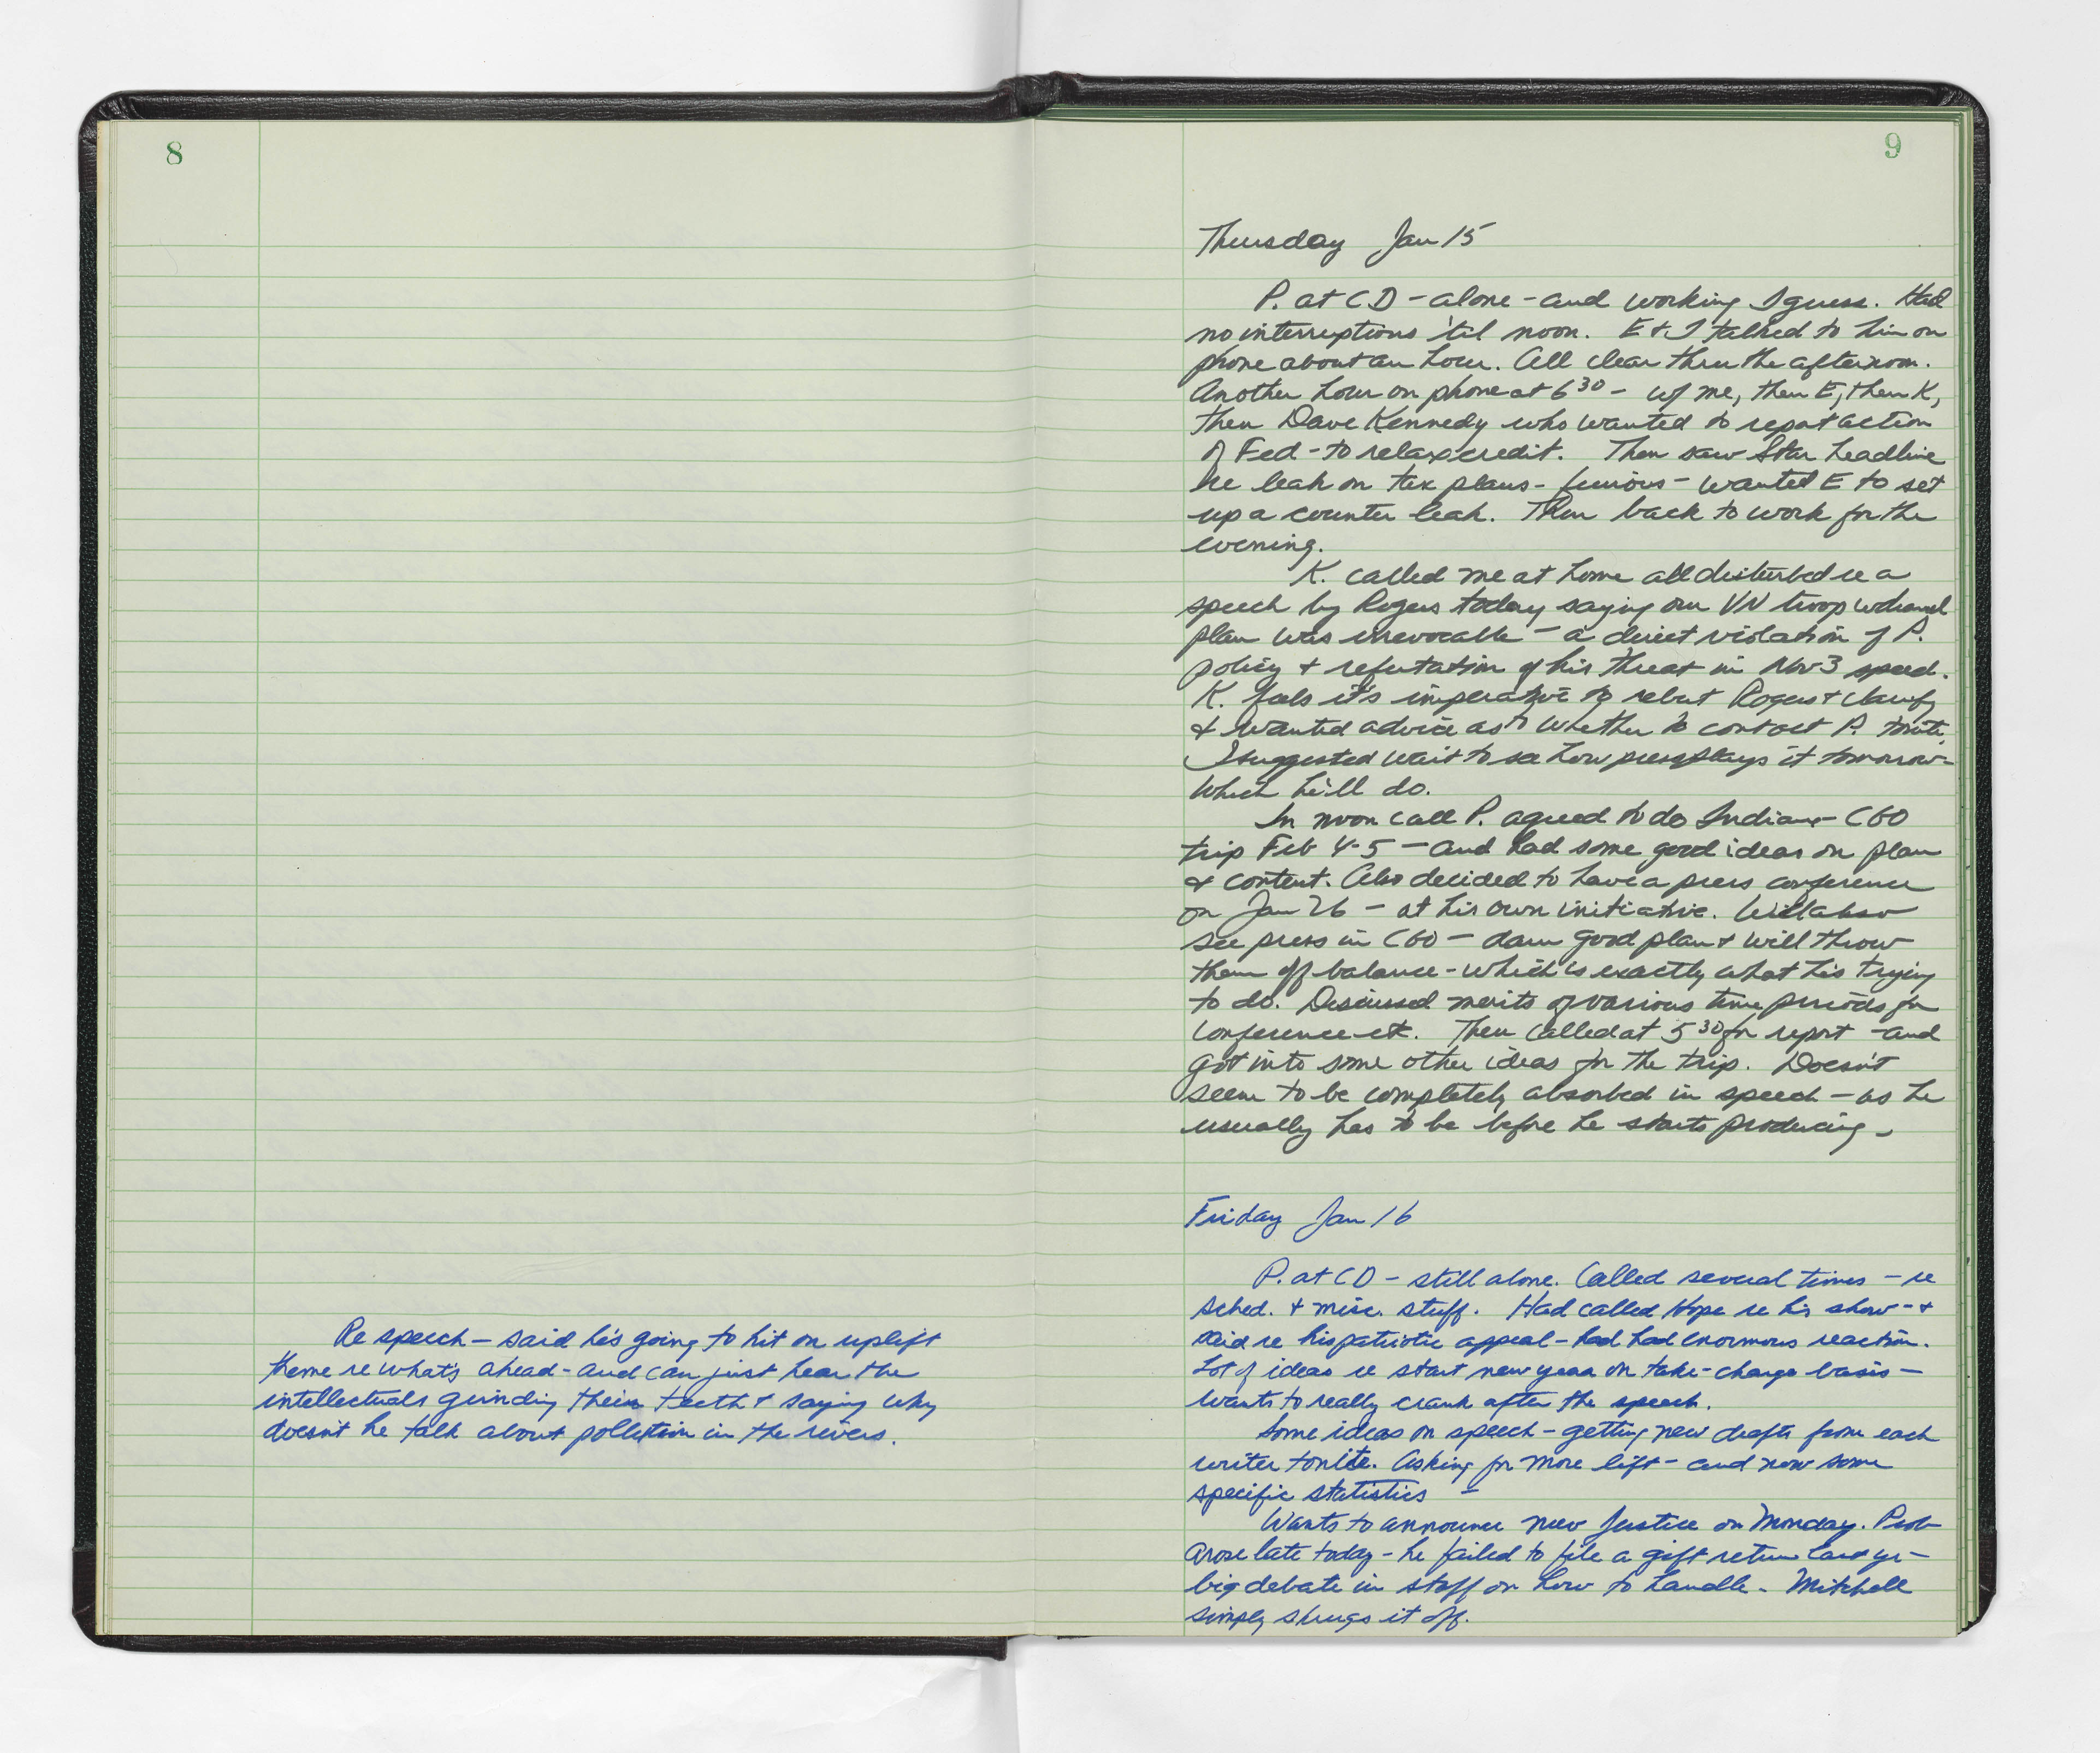 8
Re speech - said he's going to hit on uplift
theme re what's ahead - and can just hear the
intellectuals grinding their teeth & saying why
doesn't he talk about pollution in the rivers.
9
Thursday Jan 15
P. at CD - alone - and working I guess. Had
no interruptions 'til noon. E & I talked to him on
phone about an hour. All clear thru the afternoon.
Another hour on phone at 6 30 - w/ me, then E, then K,
then Dave Kennedy who wanted to report action
of Fed - to relax credit. Then saw Star headline
re leak on tax plans - furious - wanted E to set
up a counter leak. Then back to work for the
evening.
K. called me at home all disturbed re a
speech by Rogers today saying our VN troop wdrawal
plan was irrevocable - a direct violation of P.
policy & refutation of his threat in Nov 3 speech.
K. feels it's imperative to rebut Rogers & clarify
& wanted advice as to whether to contact P. tonite.
I suggested wait to see how press plays it tomorrow -
which he'll do.
In noon call P. agreed to do Indiana - CGO
trip Feb 4-5 - and had some good ideas on plan
& content. Also decided to have a press conference
on Jan 26 - at his own initiative. Will also
see press in CGO - darn good plan & will throw
them off balance - which is exactly what he's trying
to do. Discussed merits of various time periods for
conference etc. Then called at 5 30 for report - and
got into some other ideas for the trip. Doesn't
seem to be completely absorbed in speech - as he
usually has to be before he starts producing -
Friday Jan 16
P. at CD - still alone. Called several times - re
sched. & misc. stuff. Had called Hope re his show - &
said re his patriotic appeal - had had enormous reaction.
Lot of ideas re start new year on take-charge basis -
wants to really crank after the speech.
Some ideas on speech - getting new drafts from each
writer tonite. Asking for more lift - and now some
specific statistics -
Wants to announce new Justice on Monday. Prob
arose late today - he failed to file a gift return last yr -
big debate in staff on how to handle - Mitchell
simply shrugs it off.